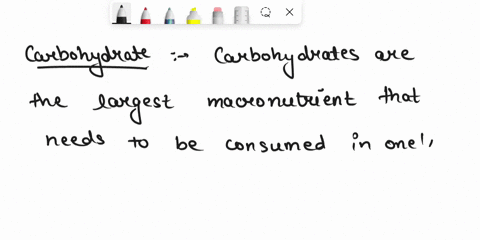 Carbohydrate :→ Carbohydrates are
the largest macronutrient that
needs to be consumed in one'